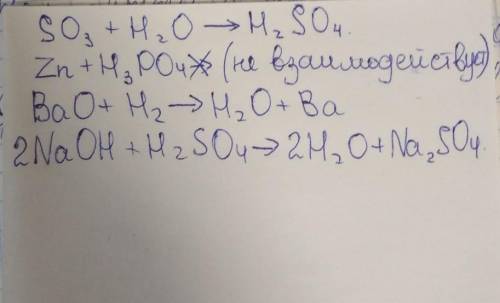 SO₃ + H₂O → H₂SO₄.
Zn + H₃PO₄ ↛ (не взаимодействует)
BaO + H₂ → H₂O + Ba
2NaOH + H₂SO₄ → 2H₂O + Na₂SO₄.